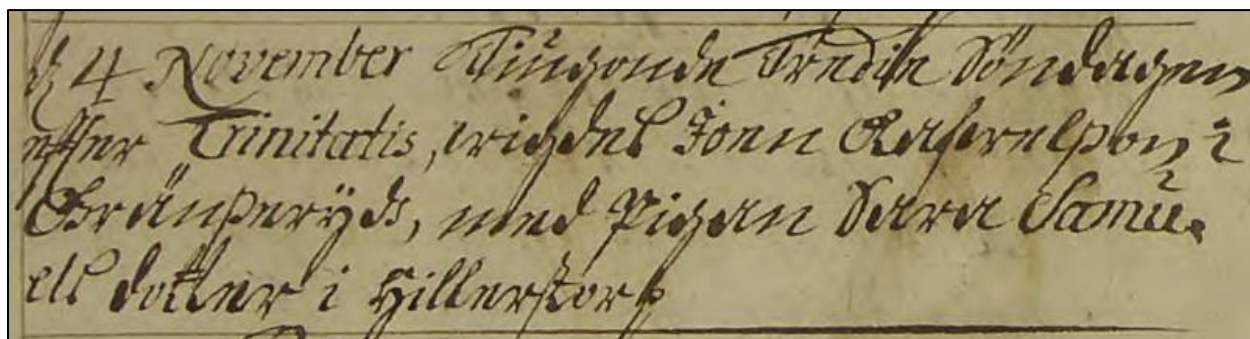 d 4 November Tiugonde Tredie Söndagen
effter Trinitatis, wigdes Joen i
Gränßeryds, med Pigan Sara Samu-
els dotter i Hillerstorp